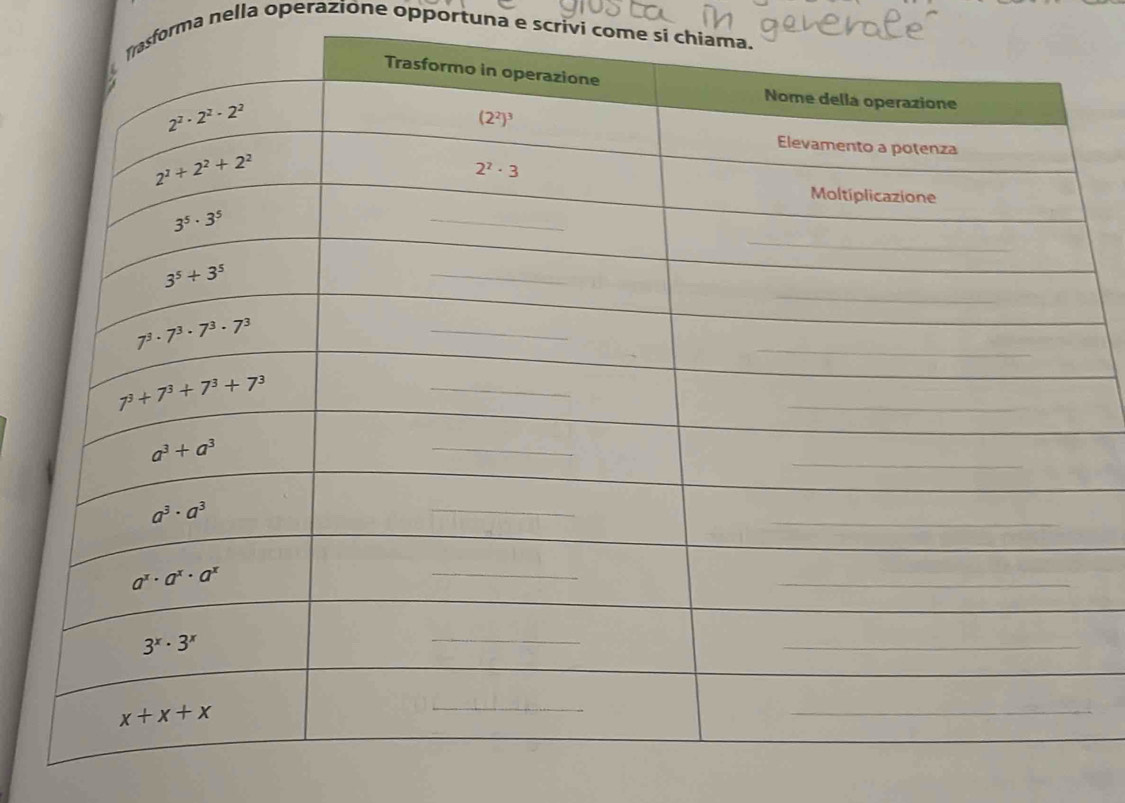 giusta in generale
Trasforma nella operazione opportuna e scrivi come si chiama.
Trasformo in operazione Nome della operazione
2² · 2² · 2² (2²)³ Elevamento a potenza
2² + 2² + 2² 2² · 3 Moltiplicazione
3⁵ · 3⁵
3⁵ + 3⁵
7³ · 7³ · 7³ · 7³
7³ + 7³ + 7³ + 7³
a³ + a³
a³ · a³
aˣ · aˣ · aˣ
3ˣ · 3ˣ
x + x + x